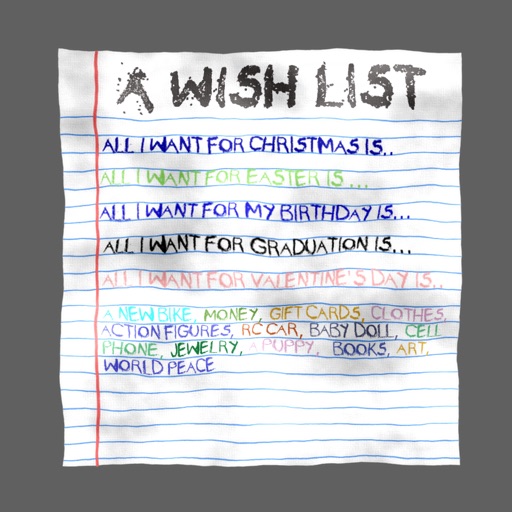 A WISH LIST
ALL I WANT FOR CHRISTMAS IS..
ALL I WANT FOR EASTER IS ...
ALL I WANT FOR MY BIRTHDAY IS...
ALL I WANT FOR GRADUATION IS...
ALL I WANT FOR VALENTINE'S DAY IS..
A NEW BIKE, MONEY, GIFT CARDS, CLOTHES,
ACTION FIGURES, RC CAR, BABY DOLL, CELL
PHONE, JEWELRY, A PUPPY, BOOKS, ART,
WORLD PEACE